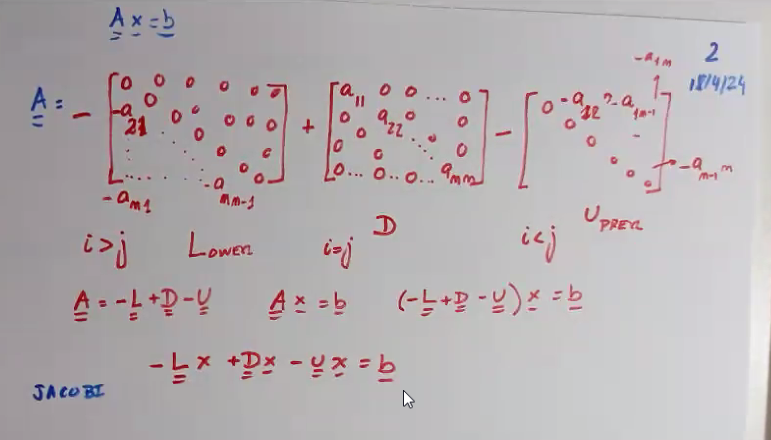 A x = b
2
18/4/24
A = - [ 0 0 0 0 0 0
-a21 0 0 0 0 0 0
-am1 ... -amm-1 0 ] + [ a11 0 0 ... 0
0 a22 0 0
0 0 0
0 ... 0 0 ... amm ] - [ 0 -a12 -a1m-1 -a1m
0
0 -am-1m
0 0 0 ]
i>j LOWER i=j D i<j UPPER
A = -L + D - U A x = b (-L + D - U) x = b
-L x + D x - U x = b
JACOBI